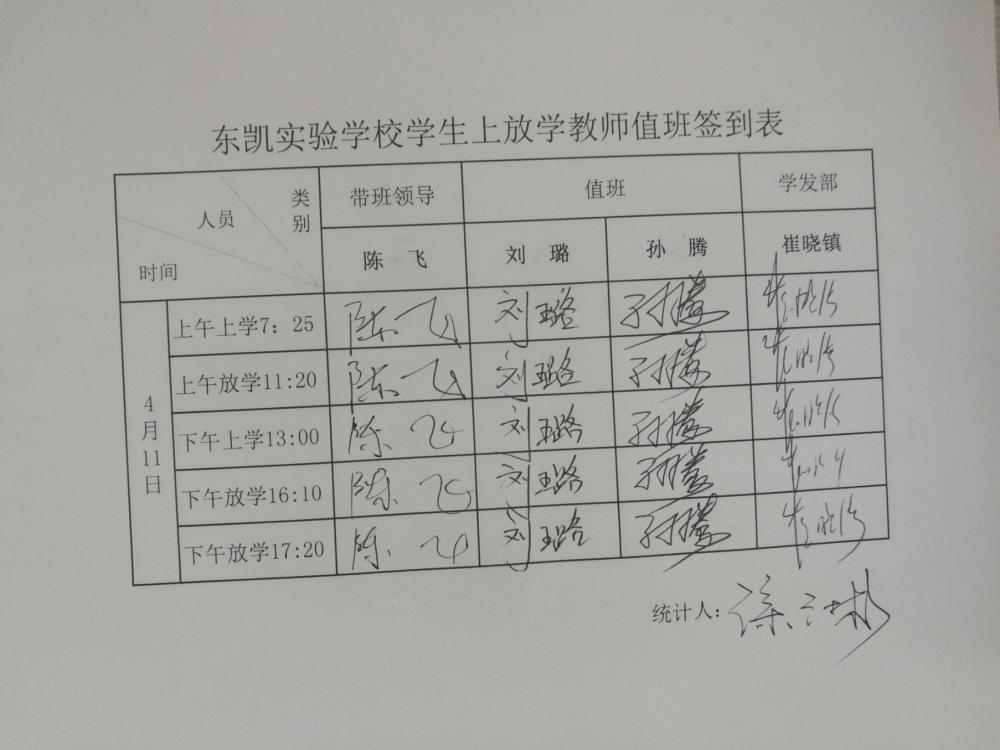 东凯实验学校学生上放学教师值班签到表
类别 人员 时间 带班领导 值班 学发部
陈 飞 刘 璐 孙 腾 崔晓镇
4月11日
上午上学7：25 陈飞 刘璐 孙腾 崔晓镇
上午放学11:20 陈飞 刘璐 孙腾 崔晓镇
下午上学13:00 陈飞 刘璐 孙腾 崔晓镇
下午放学16:10 陈飞 刘璐 孙腾
下午放学17:20 陈飞 刘璐 孙腾 崔晓镇
统计人：